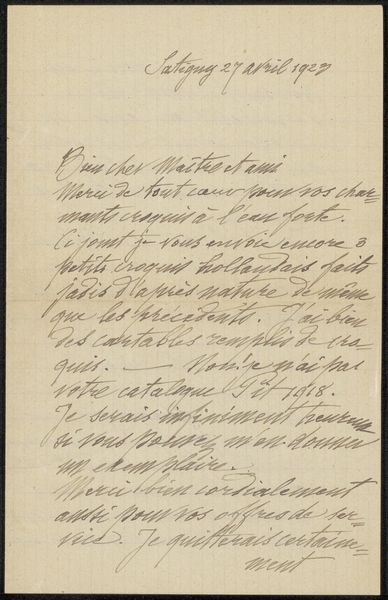 Satigny 27 avril 1923
Bien cher Maître et ami
Merci de tout cœur pour vos char=
mants croquis à l'eau forte.
Ci joint je vous envoie encore 3
petits croquis hollandais faits
jadis d'après nature de même
que les précédents. J'ai bien
des cartables remplis de cro=
quis. — Non! je n'ai pas
votre catalogue 1918.
Je serais infiniment heureux
si vous pouvez m'en donner
un exemplaire.
Merci bien cordialement
aussi pour vos offres de ser=
vice. Je quitterais certaine=
ment